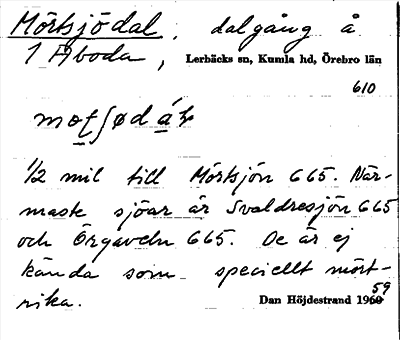 Mörtsjödal, dalgång å
1 Åboda, Lerbäcks sn, Kumla hd, Örebro län
610
1/2 mil till Mörtsjön 665. När-
maste sjöar är Svaldresjön 665
och Örgaveln 665. De är ej
kända som speciellt mört-
rika. Dan Höjdestrand 1960 59